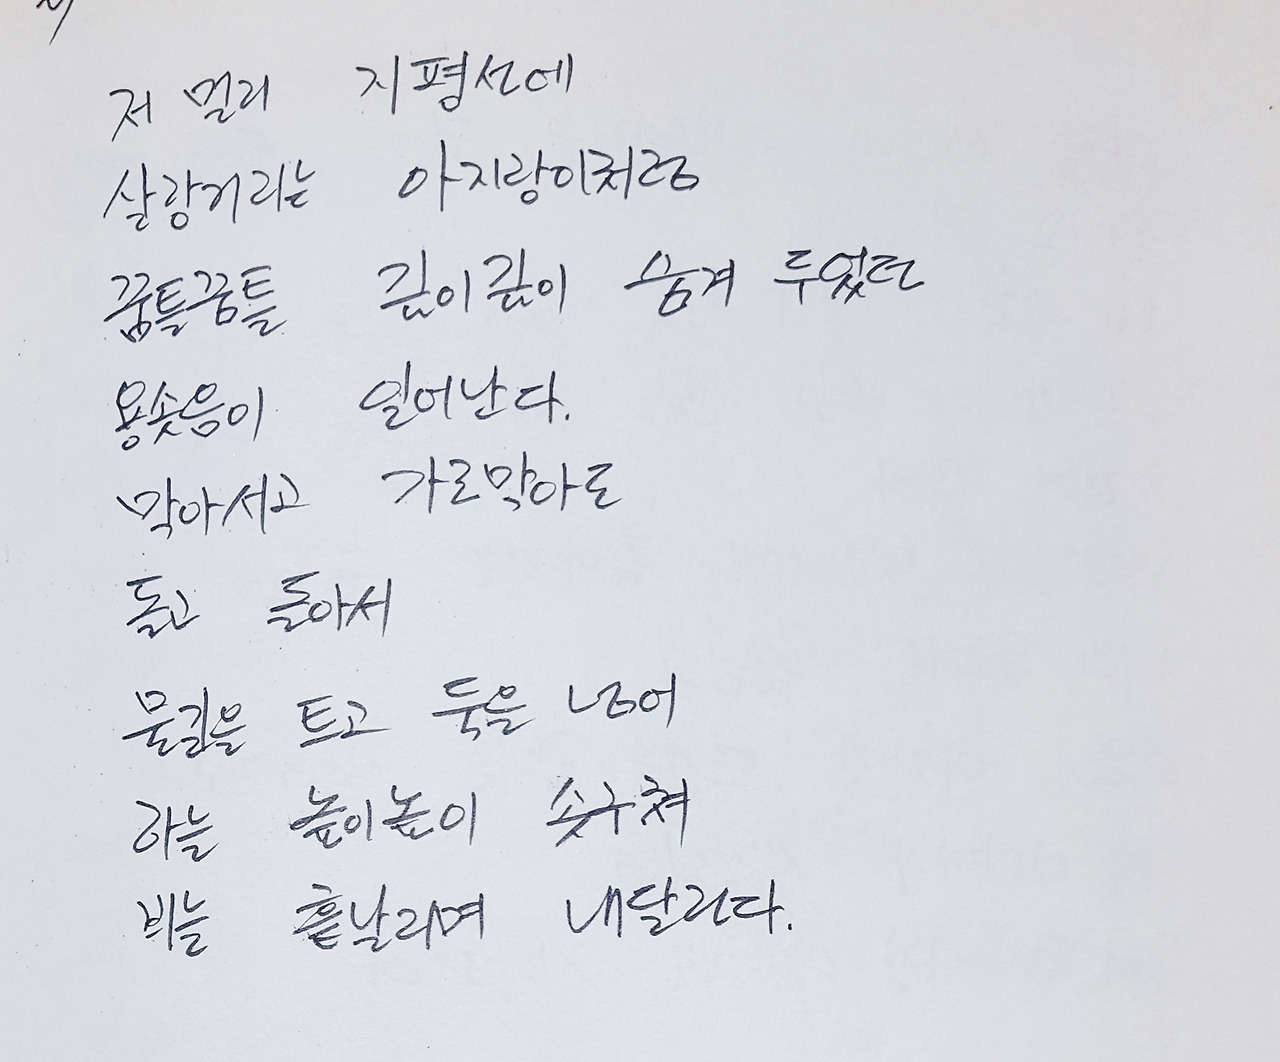 저 멀리 지평선에
살랑거리는 아지랑이처럼
꿈틀꿈틀 깊이깊이 숨겨 두었던
용솟음이 일어난다.
막아서고 가로막아도
돌고 돌아서
물길을 트고 둑을 넘어
하늘 높이높이 솟구쳐
비늘 흩날리며 내달린다.